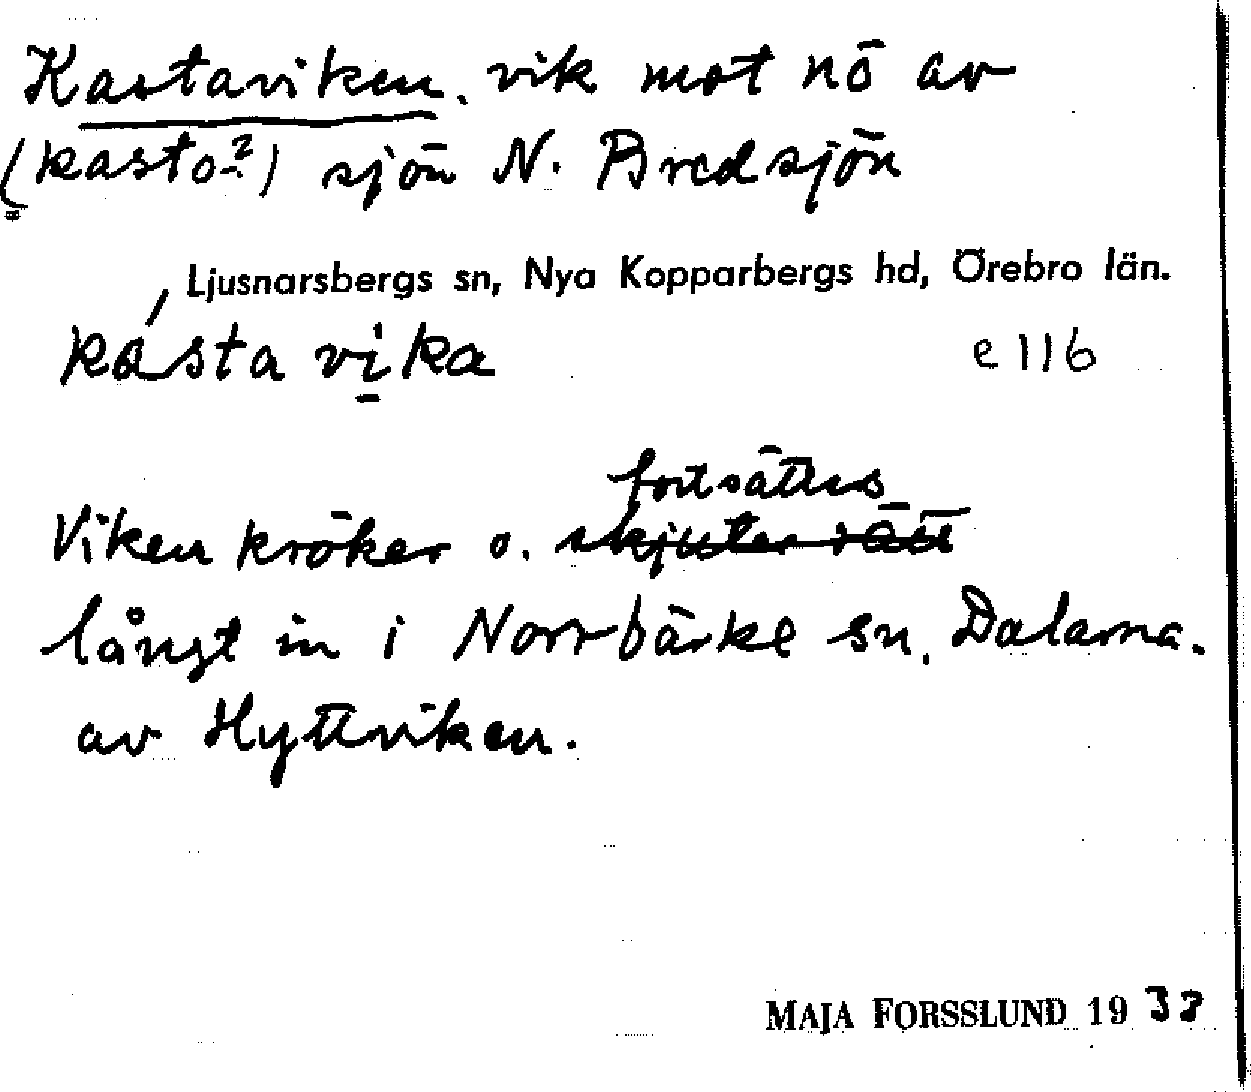 Kastaviken. vik mot nö av
(kasto-?) sjön N. Bredsjön
Ljusnarsbergs sn, Nya Kopparbergs hd, Örebro län.
kasta vika e 116
fortsättes
Viken kröker o. skjuter rätt
långt in i Norrbärke sn, Dalarna.
av Hyttviken.
MAJA FORSSLUND 19